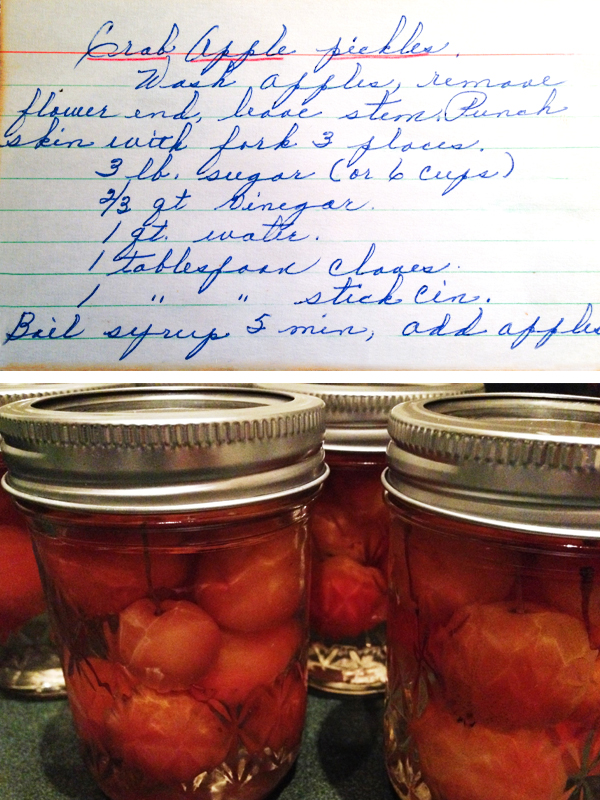 Crab Apple pickles.
Wash apples, remove
flower end, leave stem. Punch
skin with fork 3 places.
3 lb. sugar (or 6 cups)
2/3 qt vinegar.
1 qt. water.
1 tablespoon cloves.
1 " " stick cin.
Boil syrup 5 min, add apples